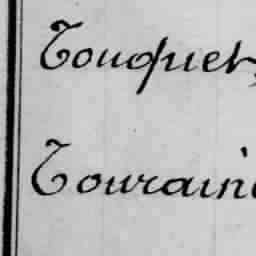 Touquet,
Touraine